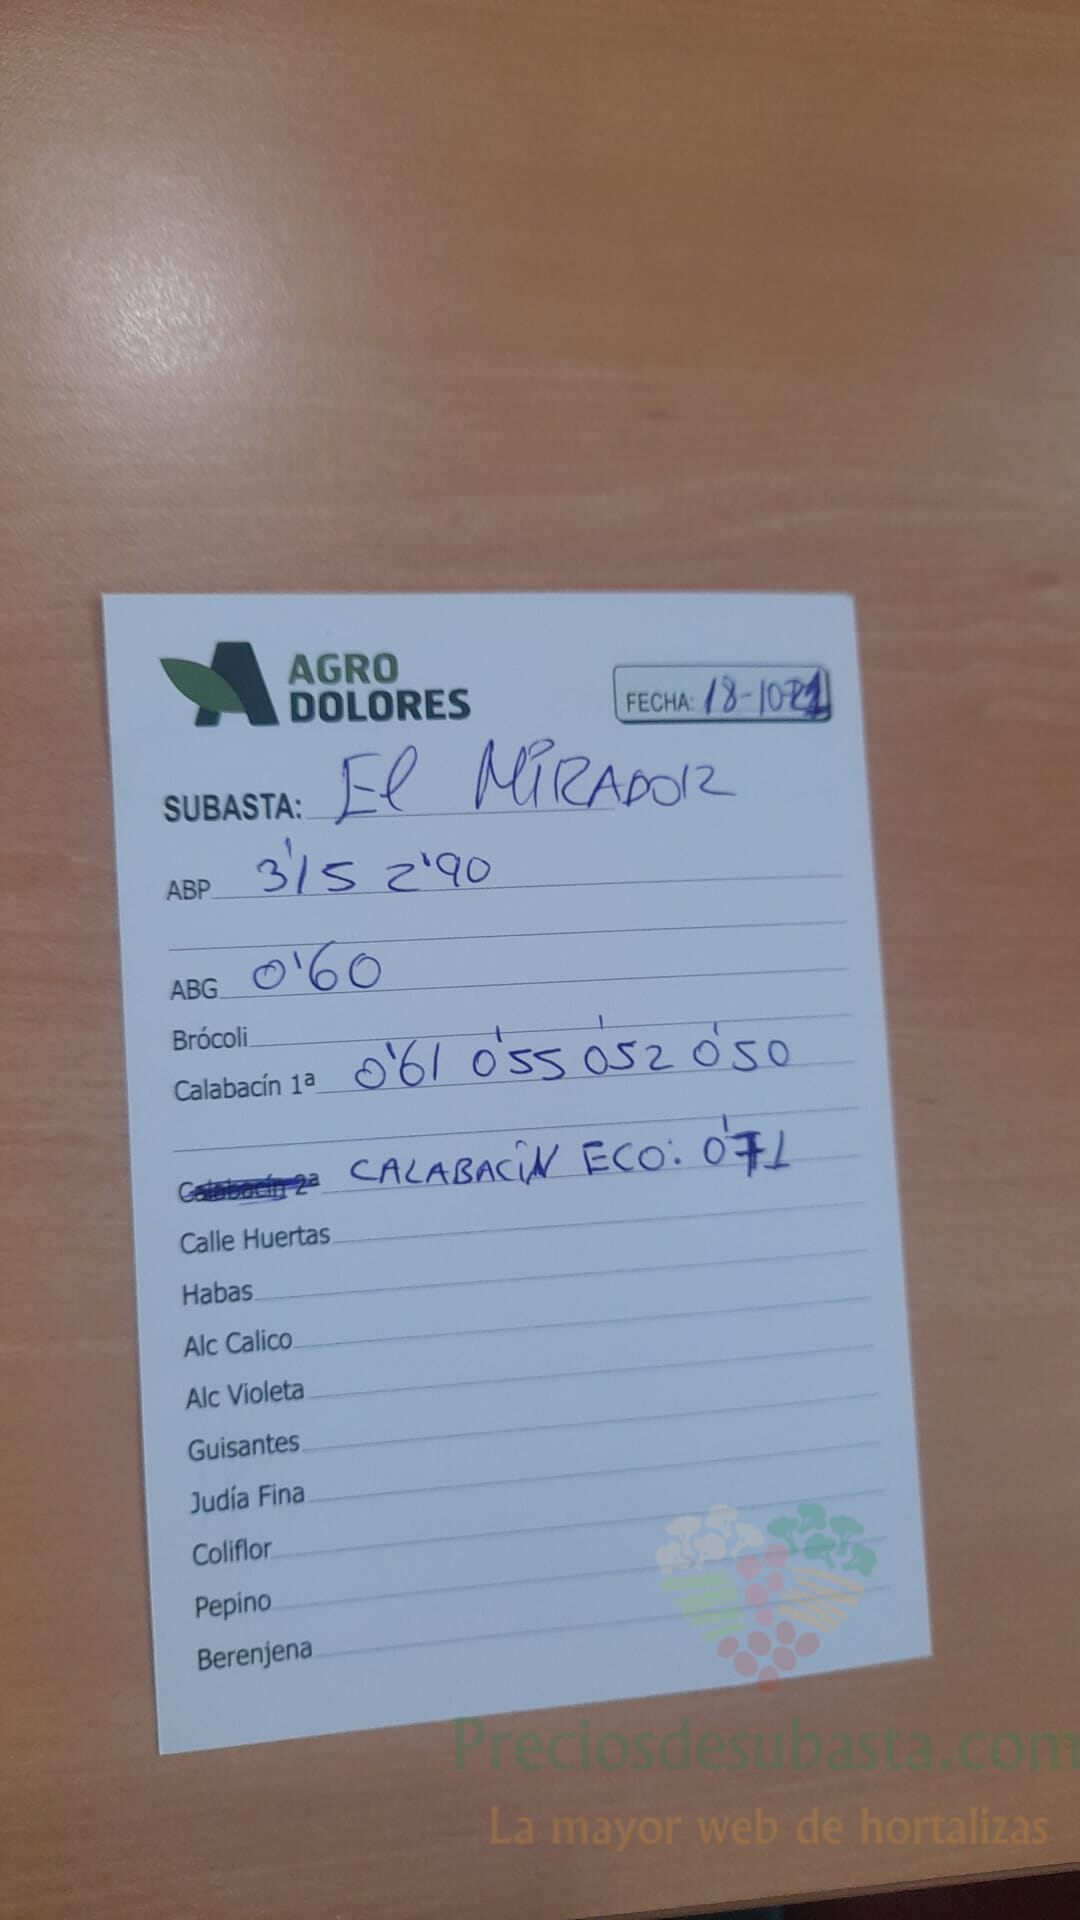 AGRO
DOLORES
FECHA: 18-10-21
SUBASTA: El MIRADOR
ABP 3'15 2'90
ABG 0'60
Brócoli
Calabacín 1ª 0'61 0'55 0'52 0'50
Calabacín 2ª CALABACÍN ECO: 0'71
Calle Huertas
Habas
Alc Calico
Alc Violeta
Guisantes
Judía Fina
Coliflor
Pepino
Berenjena
Preciosdesubasta.com
La mayor web de hortalizas